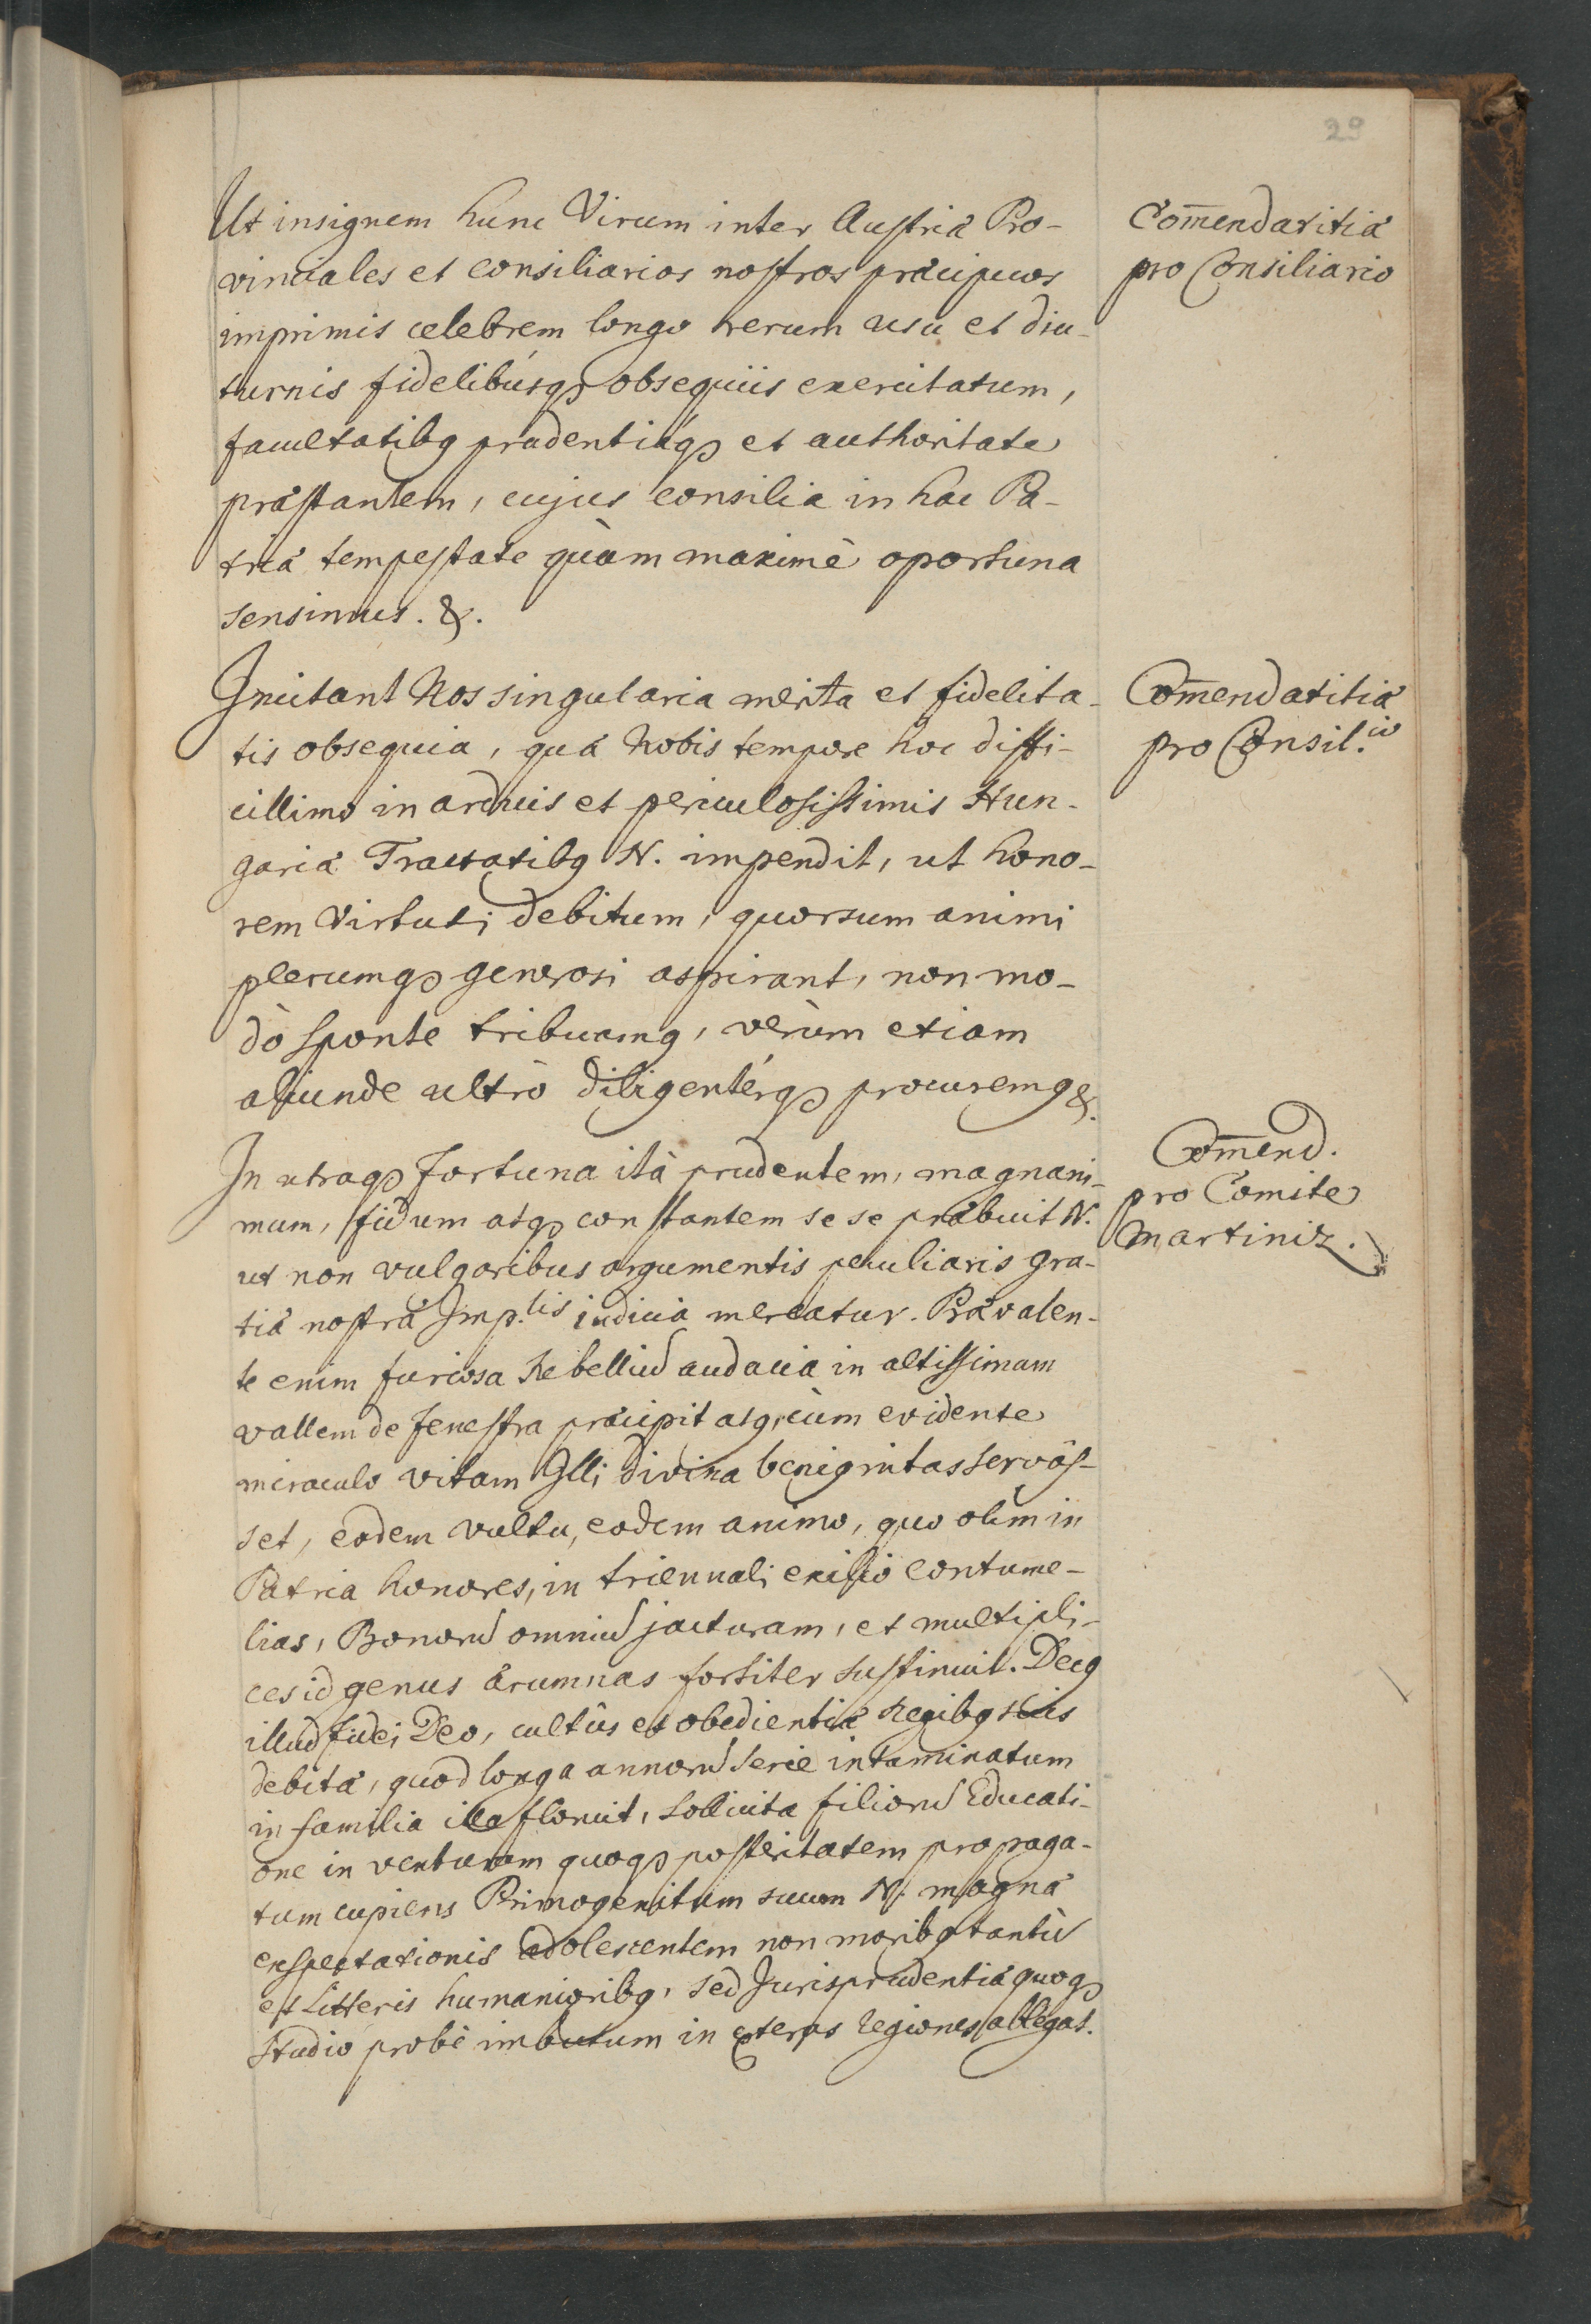 29
Ut insignem hunc Virum inter Austriæ Pro-
vinciales et consiliarios nostros præcipuos
imprimis celebrem longo rerum usu et diu-
turnis fidelibúsq3 obsequiis exercitatum,
facultatib9 prudentiáq3 et authoritate
præstantem, cujus consilia in hac Pa-
triæ tempestate quàm maximè oportuna
sensimus. &.
Comẽndatitiæ
pro Consiliario
Incitant Nos singularia merita et fidelita-
tis obsequia, quæ Nobis tempore hoc diffi-
cillimo in arduis et periculosissimis Hun-
gariæ Tractatib9 N. impendit, ut hono-
rem Virtuti debitum, quorsum animi
plerumq3 generosi aspirant, non mo-
dò sponte tribuam9, verùm etiam
aliunde ultrò diligentérq3 procurem9 &.
Com̄endatitiæ
pro Consil.io
In utraq3 fortuna ità prudentem, magnani-
mum, fidum atq3 constantem se se præbuit N.
ut non vulgaribus argumentis peculiaris gra-
tiæ nostræ Imp.lis indicia mereatur. Prævalen-
te enim furiosa Rebelliũ audacia in altissimam
vallem de fenestra præcipitat9, cùm evidente
miraculo vitam Illi divina benignitas servâs-
set, eodem vultu, eodem animo, quo olim in
Patria honores, in triennali exilio contume-
lias, Bonorũ omniũ jacturam, et multipli-
ces id genus ærumnas fortiter sustinuit. Dec9
illud fidei Deo, cultûs et obedientiæ Regib9 suis
debitæ, quod longa annorũ serie intaminatum
in familia illa floruit, sollicita filiorũ Educati-
one in venturam quoq3 posteritatem propaga-
tum cupiens Primogenitum suum N. magnæ
exspectationis adolescentem non morib9 tantũ
et Litteris humaniorib9, sed Jurisprudentiæ quoq3
studio probè imbutum in exteras regiones ablegat.
Com̄end.
pro Comite
Martiniz.